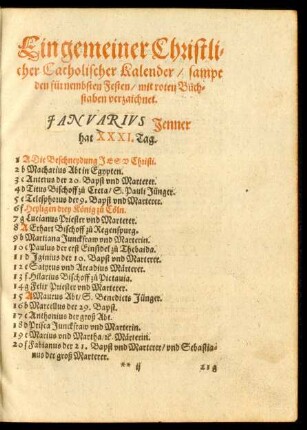 Ein gemeiner Christli-
cher Catholischer Kalender / sampt
den fürnembsten Festen / mit roten Büch-
staben verzaichnet.
JANVARIVS Jenner
hat XXXI. Tag.
1 A Die Beschneydung JESU Christi.
2 b Macharius Abt in Egypten.
3 c Anterus der 20. Bapst vnd Marterer.
4 d Titus Bischoff zu Creta / S. Pauls Jünger.
5 e Telesphorus der 9. Bapst vnd Marterer.
6 f Heyligen drey König zu Cöln.
7 g Lucianus Priester vnd Marterer.
8 A Erhart Bischoff zu Regenspurg.
9 b Martiana Junckfraw vnd Marterin.
10 c Paulus der erst Einsidel zu Thebaida.
11 d Iginius der 10. Bapst vnd Marterer.
12 e Satyrus vnd Arcadius Märterer.
13 f Hilarius Bischoff zu Pictauia.
14 g Felix Priester vnd Marterer.
15 A Maurus Abt / S. Benedicts Jünger.
16 b Marcellus der 29. Bapst.
17 c Anthonius der groß Abt.
18 d Prisca Junckfraw vnd Marterin.
19 e Marius vnd Martha / ꝛc. Märterin.
20 f Fabianus der 21. Bapst vnd Marterer / vnd Sebastia-
nus der groß Marterer.
** ij 21 g